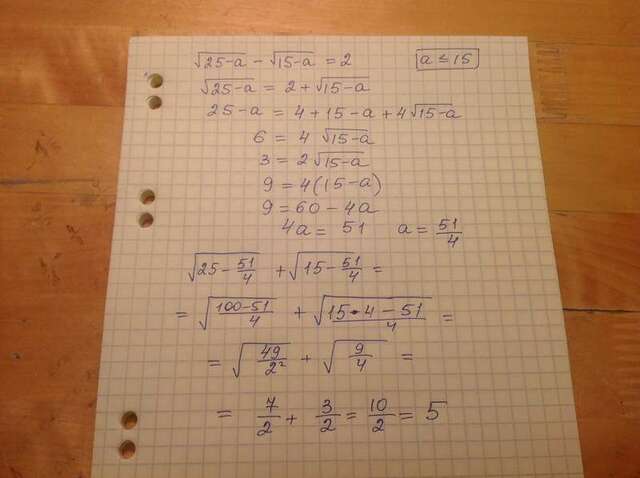 √25-a - √15-a = 2 a ≤ 15
√25-a = 2 + √15-a
25-a = 4 + 15 - a + 4√15-a
6 = 4 √15-a
3 = 2√15-a
9 = 4(15-a)
9 = 60 - 4a
4a = 51 a = 51/4
√25 - 51/4 + √15 - 51/4 =
= √100-51/4 + √15•4-51/4 =
= √49/2² + √9/4 =
= 7/2 + 3/2 = 10/2 = 5